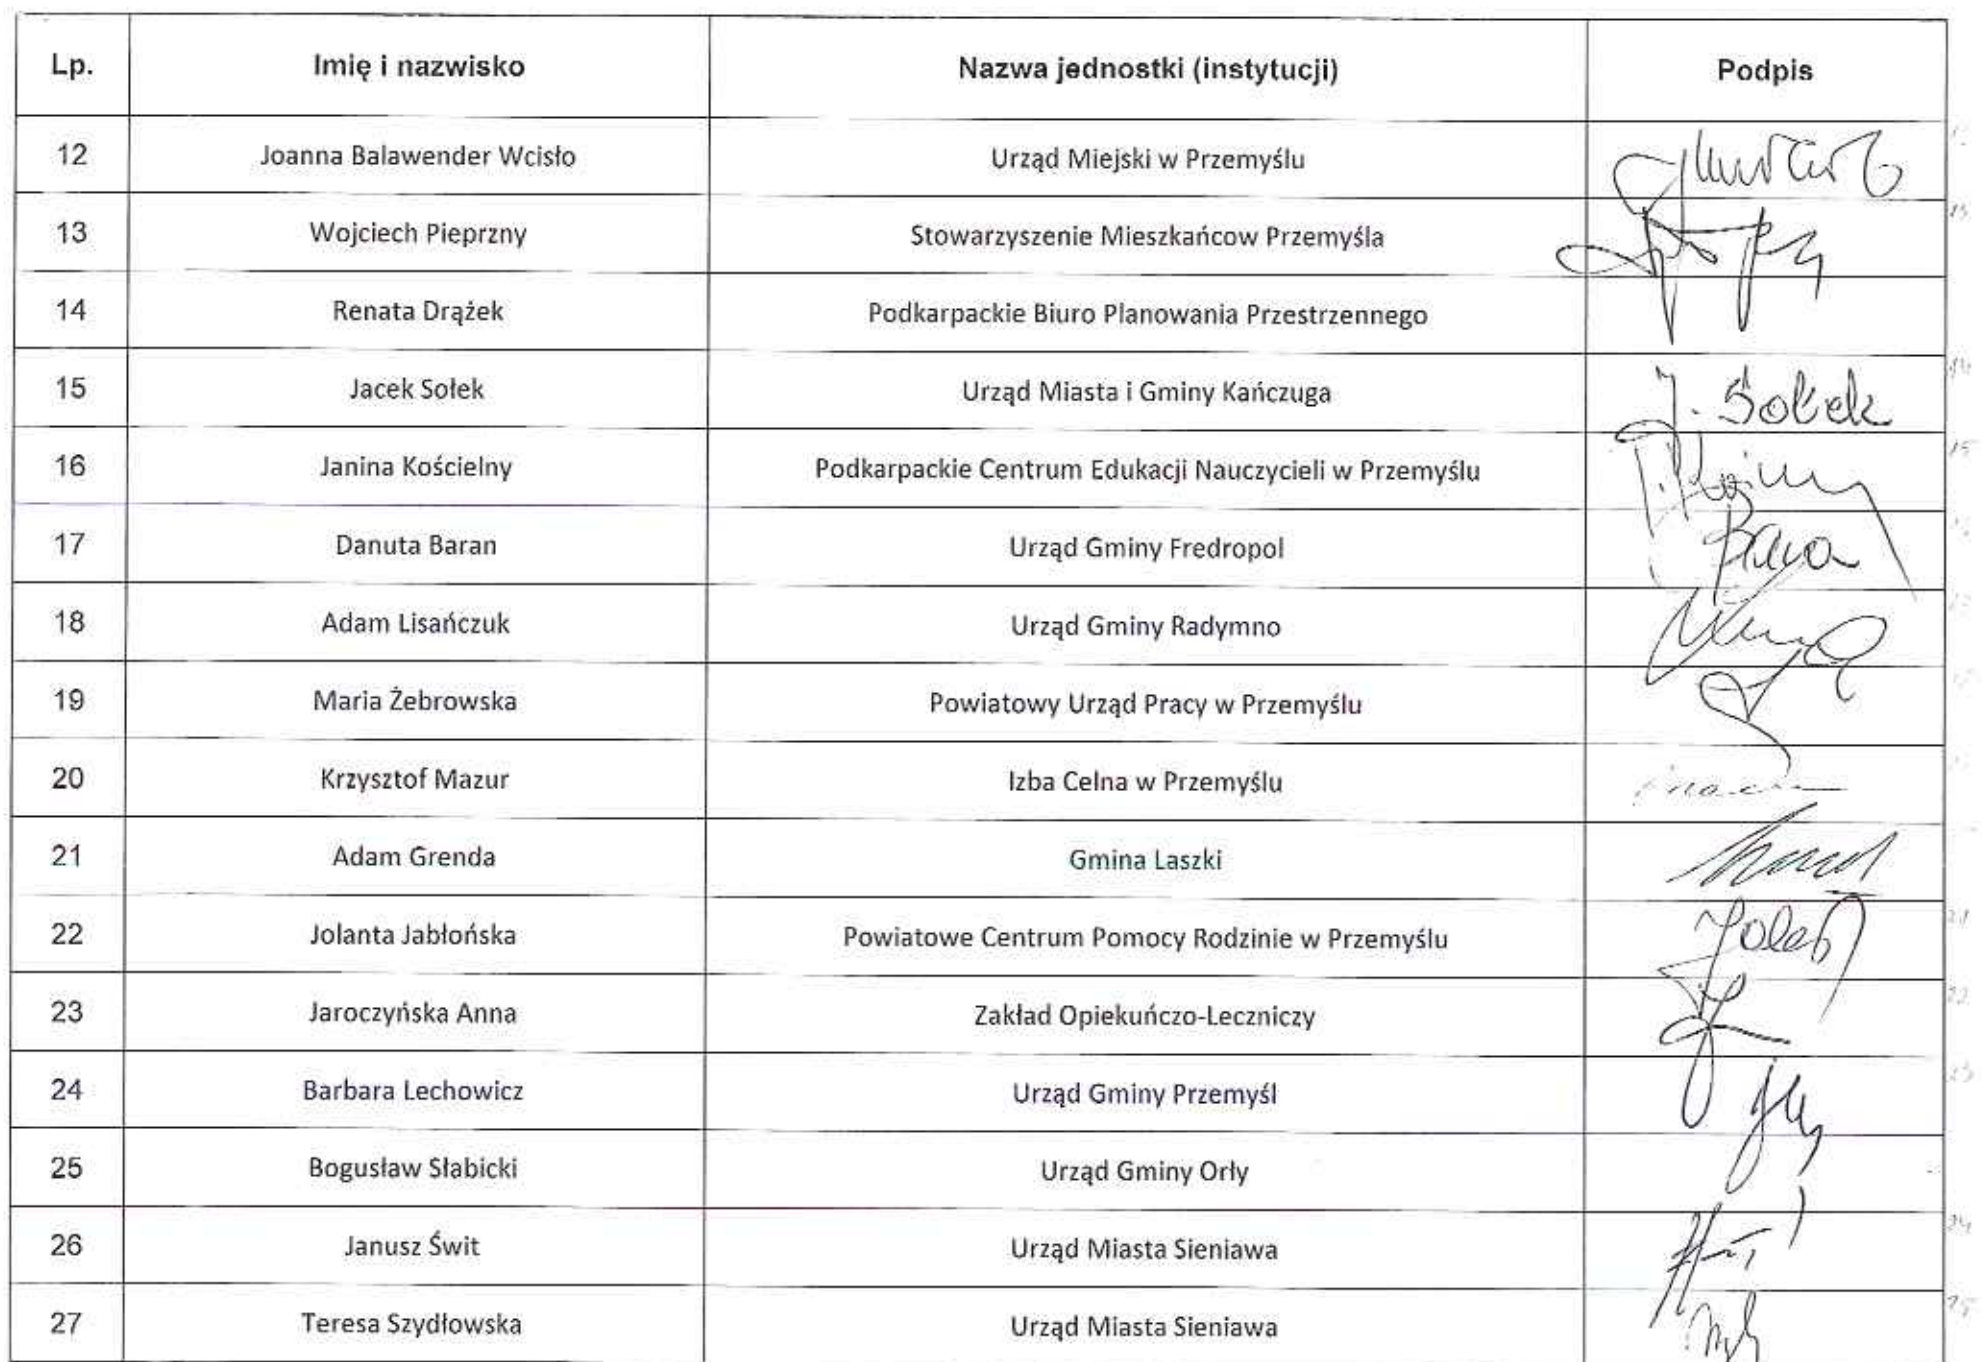 Lp. Imię i nazwisko Nazwa jednostki (instytucji) Podpis
12 Joanna Balawender Wcisło Urząd Miejski w Przemyślu
13 Wojciech Pieprzny Stowarzyszenie Mieszkańcow Przemyśla
14 Renata Drążek Podkarpackie Biuro Planowania Przestrzennego
15 Jacek Sołek Urząd Miasta i Gminy Kańczuga J. Sołek
16 Janina Kościelny Podkarpackie Centrum Edukacji Nauczycieli w Przemyślu
17 Danuta Baran Urząd Gminy Fredropol
18 Adam Lisańczuk Urząd Gminy Radymno
19 Maria Żebrowska Powiatowy Urząd Pracy w Przemyślu
20 Krzysztof Mazur Izba Celna w Przemyślu
21 Adam Grenda Gmina Laszki
22 Jolanta Jabłońska Powiatowe Centrum Pomocy Rodzinie w Przemyślu
23 Jaroczyńska Anna Zakład Opiekuńczo-Leczniczy
24 Barbara Lechowicz Urząd Gminy Przemyśl
25 Bogusław Słabicki Urząd Gminy Orły
26 Janusz Świt Urząd Miasta Sieniawa
27 Teresa Szydłowska Urząd Miasta Sieniawa